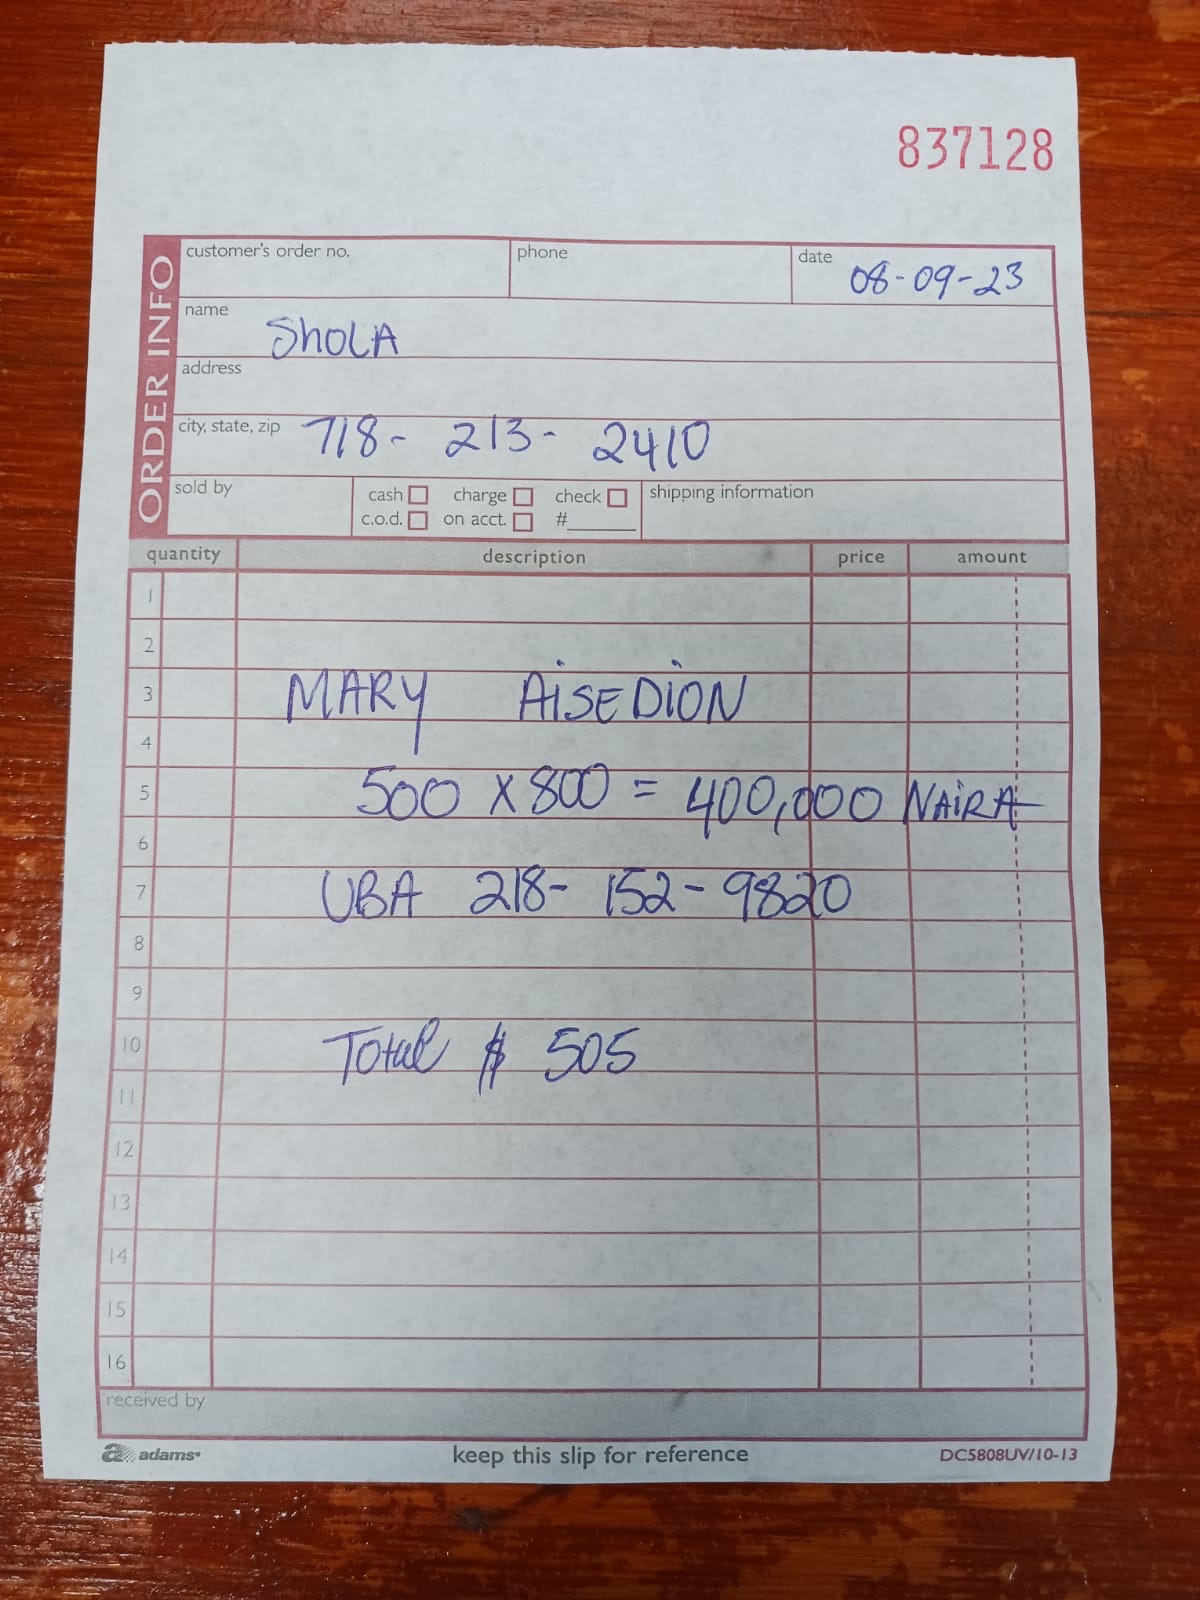 837128
ORDER INFO
customer's order no. phone date 08-09-23
name SholA
address
city, state, zip 718- 213- 2410
sold by cash charge check shipping information
c.o.d. on acct. #______
quantity description price amount
1
2
3 MARY AiSEDiON
4
5 500 x 800 = 400,000 NAiRA
6
7 UBA 218- 152- 9820
8
9
10 Total $ 505
11
12
13
14
15
16
received by
adams® keep this slip for reference DC5808UV/10-13